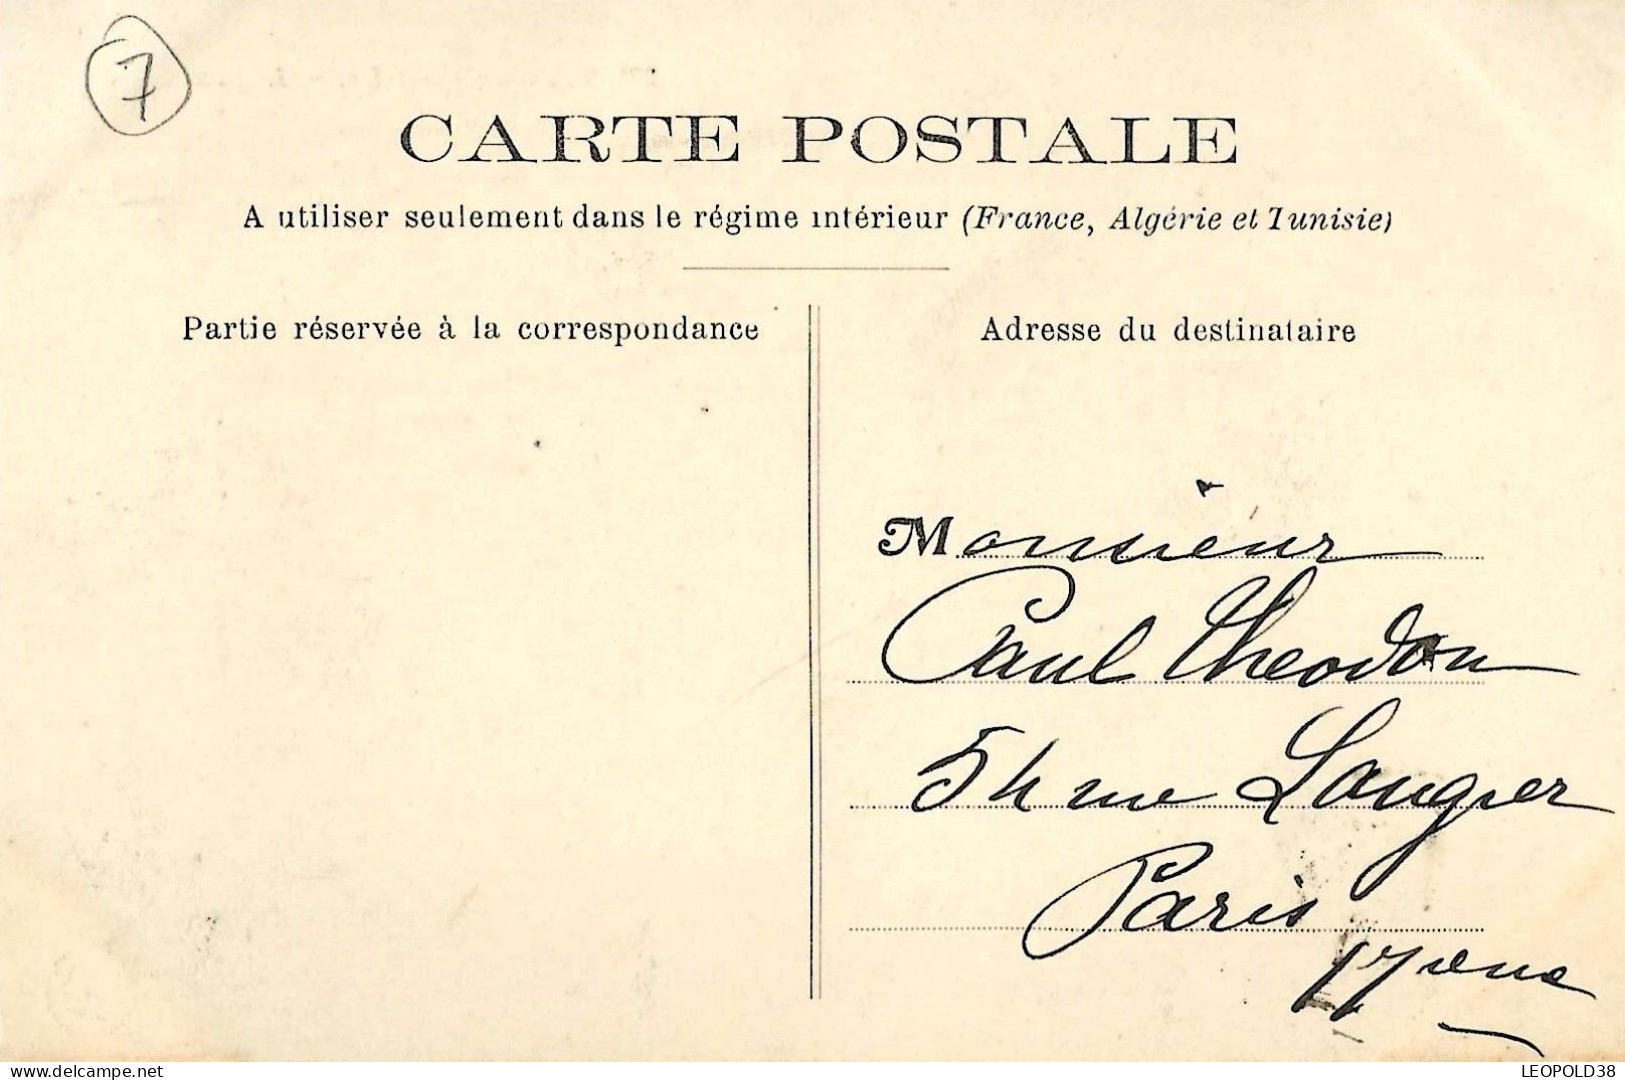 7
CARTE POSTALE
A utiliser seulement dans le régime intérieur (France, Algérie et Tunisie)
Partie réservée à la correspondance
Adresse du destinataire
Monsieur
Paul Theodon
54 rue Laugier
Paris
17ème
delcampe.net
LEOPOLD38